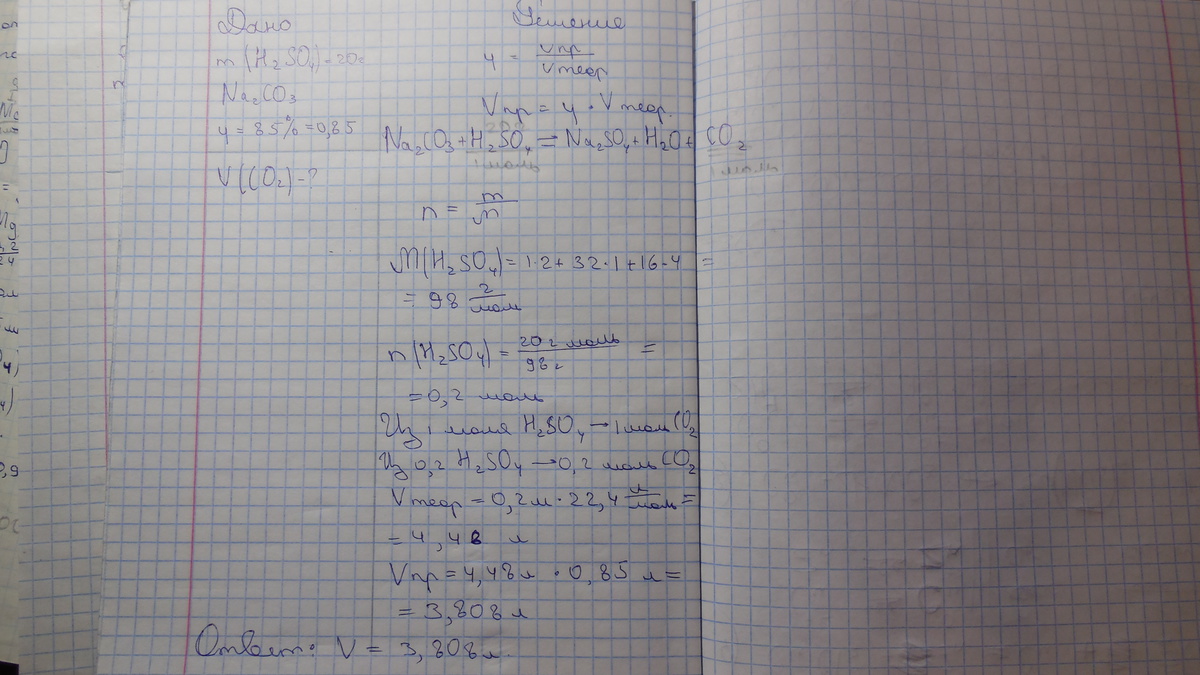 Дано
m(H₂SO₄)-20г
Na₂CO₃
η = 85% = 0,85
V(CO₂)-?
Решение
η = Vпр / Vтеор
Vпр = η · Vтеор.
Na₂CO₃ + H₂SO₄ = Na₂SO₄ + H₂O + CO₂
1 моль 1 моль
n = m / M
M(H₂SO₄) = 1·2 + 32·1 + 16·4 =
= 98 г/моль
n(H₂SO₄) = 20 г моль / 98 г =
= 0,2 моль
Из 1 моля H₂SO₄ → 1 моль CO₂
Из 0,2 H₂SO₄ → 0,2 моль CO₂
Vтеор = 0,2м · 22,4 л/моль =
= 4,48 л
Vпр = 4,48л · 0,85 л =
= 3,808 л
Ответ: V = 3,808л.